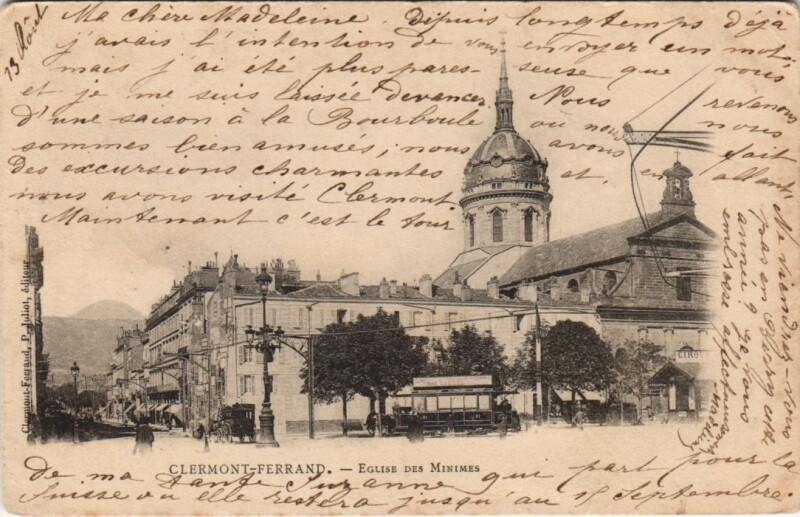 13 Août
Ma chère Madeleine. Depuis longtemps déjà
j'avais l'intention de vous envoyer un mot,
mais j'ai été plus pares-seuse que vous
et je me suis laissée devancer. Nous revenons
d'une saison à la Bourboule où nous nous
sommes bien amusés; nous avons fait
des excursions charmantes et, en allant,
nous avons visité Clermont.
Maintenant c'est le tour
de ma tante Suzanne qui part pour la
Suisse où elle restera jusqu'au 15 Septembre.
Ne viendrez-vous
pas en cette
année? Je vous
embrasse affectueusement
CIRQUE
Clermont-Ferrand, P. Juliot, éditeur
CLERMONT-FERRAND. — EGLISE DES MINIMES